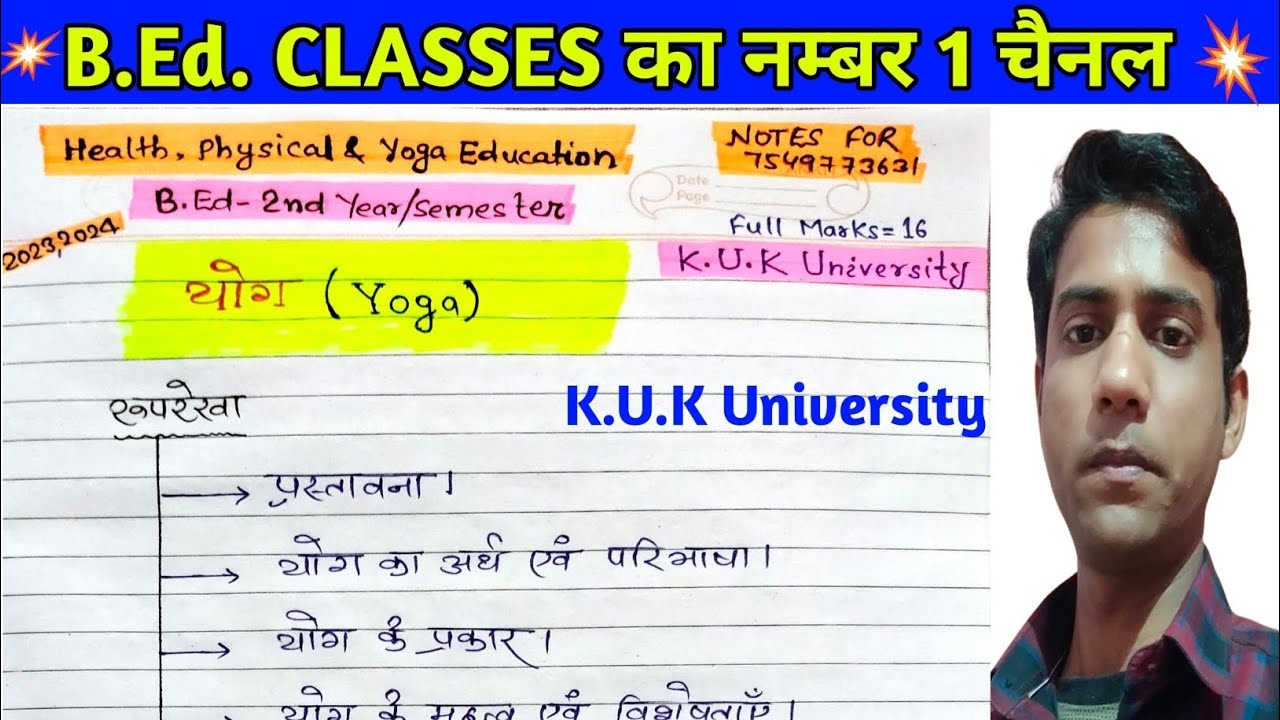 B.Ed. CLASSES का नम्बर 1 चैनल
Health, Physical & Yoga Education
NOTES FOR
7549773631
Date
Page
B.Ed- 2nd Year/Semester
Full Marks= 16
2023,2024
K.U.K University
योग (Yoga)
K.U.K University
रूपरेखा
प्रस्तावना।
योग का अर्थ एवं परिभाषा।
योग के प्रकार।
योग के महत्व एवं विशेषताएँ।